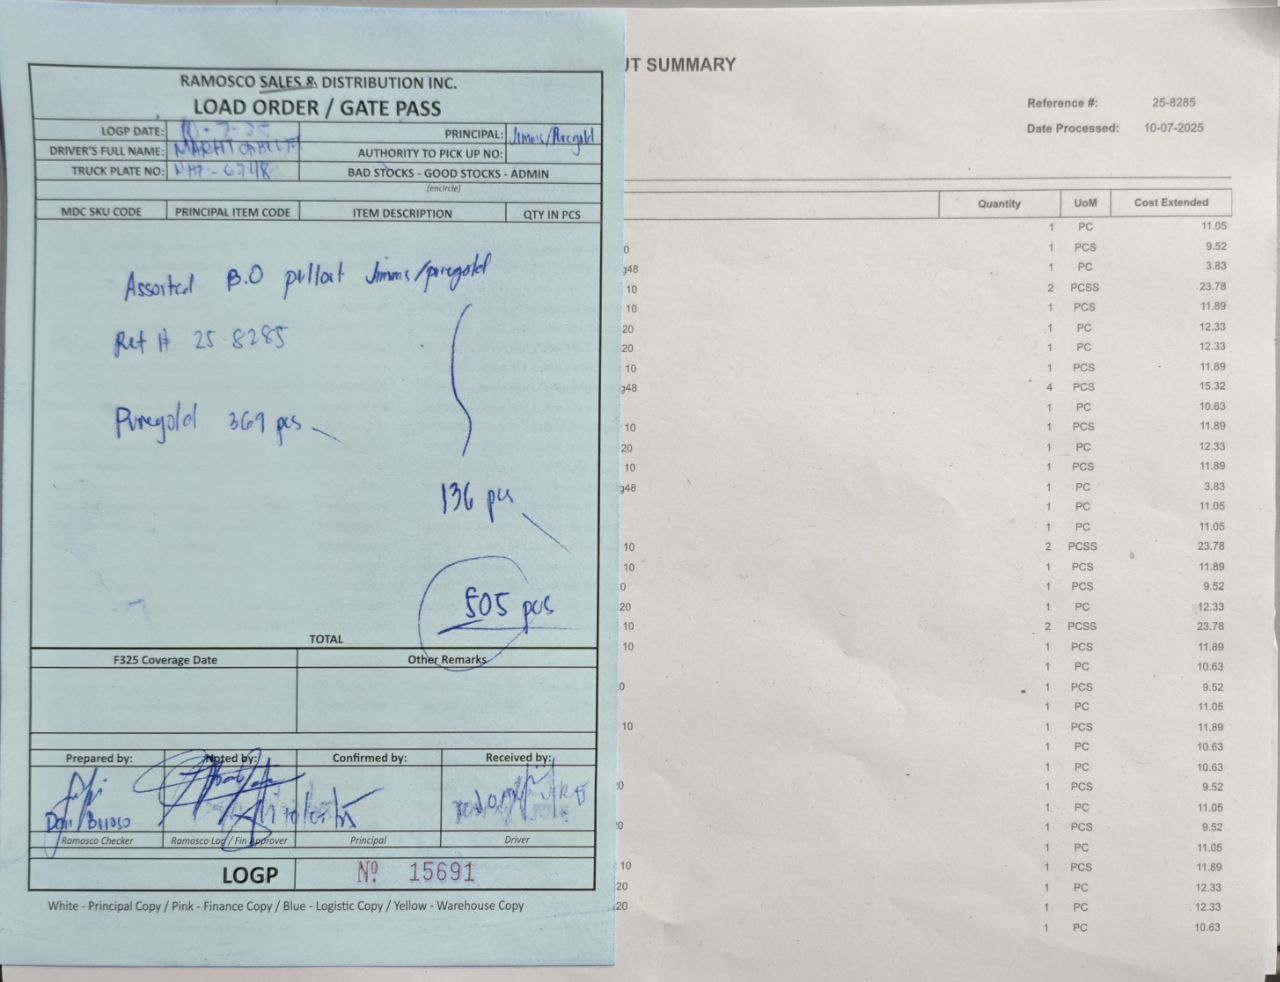 RAMOSCO SALES & DISTRIBUTION INC.
LOAD ORDER / GATE PASS
LOGP DATE: 10-7-25
PRINCIPAL: Jimms/Puregold
DRIVER'S FULL NAME:
AUTHORITY TO PICK UP NO:
TRUCK PLATE NO: 6748
BAD STOCKS - GOOD STOCKS - ADMIN
(encircle)
MDC SKU CODE PRINCIPAL ITEM CODE ITEM DESCRIPTION QTY IN PCS
Assorted B.O pullout Jimms/puregold
Ref # 25-8285
Puregold 369 pcs
136 pcs
505 pcs
TOTAL
F325 Coverage Date Other Remarks
Prepared by: Noted by: Confirmed by: Received by:
Ramosco Checker Ramosco Log / Fin Approver Principal Driver
LOGP Nº 15691
White - Principal Copy / Pink - Finance Copy / Blue - Logistic Copy / Yellow - Warehouse Copy
UT SUMMARY
Reference #: 25-8285
Date Processed: 10-07-2025
Quantity UoM Cost Extended
1 PC 11.05
0 1 PCS 9.52
g48 1 PC 3.83
10 2 PCSS 23.78
10 1 PCS 11.89
20 1 PC 12.33
20 1 PC 12.33
10 1 PCS 11.89
g48 4 PCS 15.32
1 PC 10.63
10 1 PCS 11.89
20 1 PC 12.33
10 1 PCS 11.89
g48 1 PC 3.83
1 PC 11.05
1 PC 11.05
10 2 PCSS 23.78
10 1 PCS 11.89
0 1 PCS 9.52
20 1 PC 12.33
10 2 PCSS 23.78
10 1 PCS 11.89
1 PC 10.63
0 1 PCS 9.52
1 PC 11.05
10 1 PCS 11.89
1 PC 10.63
1 PC 10.63
0 1 PCS 9.52
1 PC 11.05
0 1 PCS 9.52
1 PC 11.05
10 1 PCS 11.89
20 1 PC 12.33
20 1 PC 12.33
1 PC 10.63